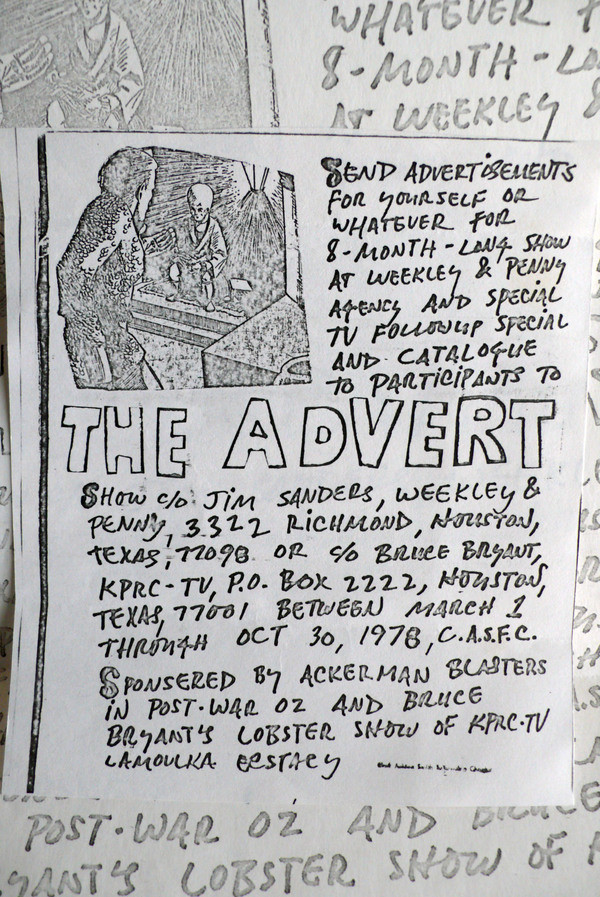 WHATEVER F
8-MONTH-LO
AT WEEKLEY &
SEND ADVERTISEMENTS
FOR YOURSELF OR
WHATEVER FOR
8-MONTH-LONG SHOW
AT WEEKLEY & PENNY
AGENCY AND SPECIAL
TV FOLLOWUP SPECIAL
AND CATALOGUE
TO PARTICIPANTS TO
THE ADVERT
SHOW C/O JIM SANDERS, WEEKLEY &
PENNY, 3322 RICHMOND, HOUSTON,
TEXAS, 77098 OR C/O BRUCE BRYANT,
KPRC-TV, P.O. BOX 2222, HOUSTON,
TEXAS, 77001 BETWEEN MARCH 1
THROUGH OCT 30, 1978, C.A.S.F.C.
SPONSERED BY ACKERMAN BLASTERS
IN POST-WAR OZ AND BRUCE
BRYANT'S LOBSTER SHOW OF KPRC-TV
LAMOUKA ECSTACY
POST-WAR OZ AND BRUCE
YANT'S LOBSTER SHOW OF